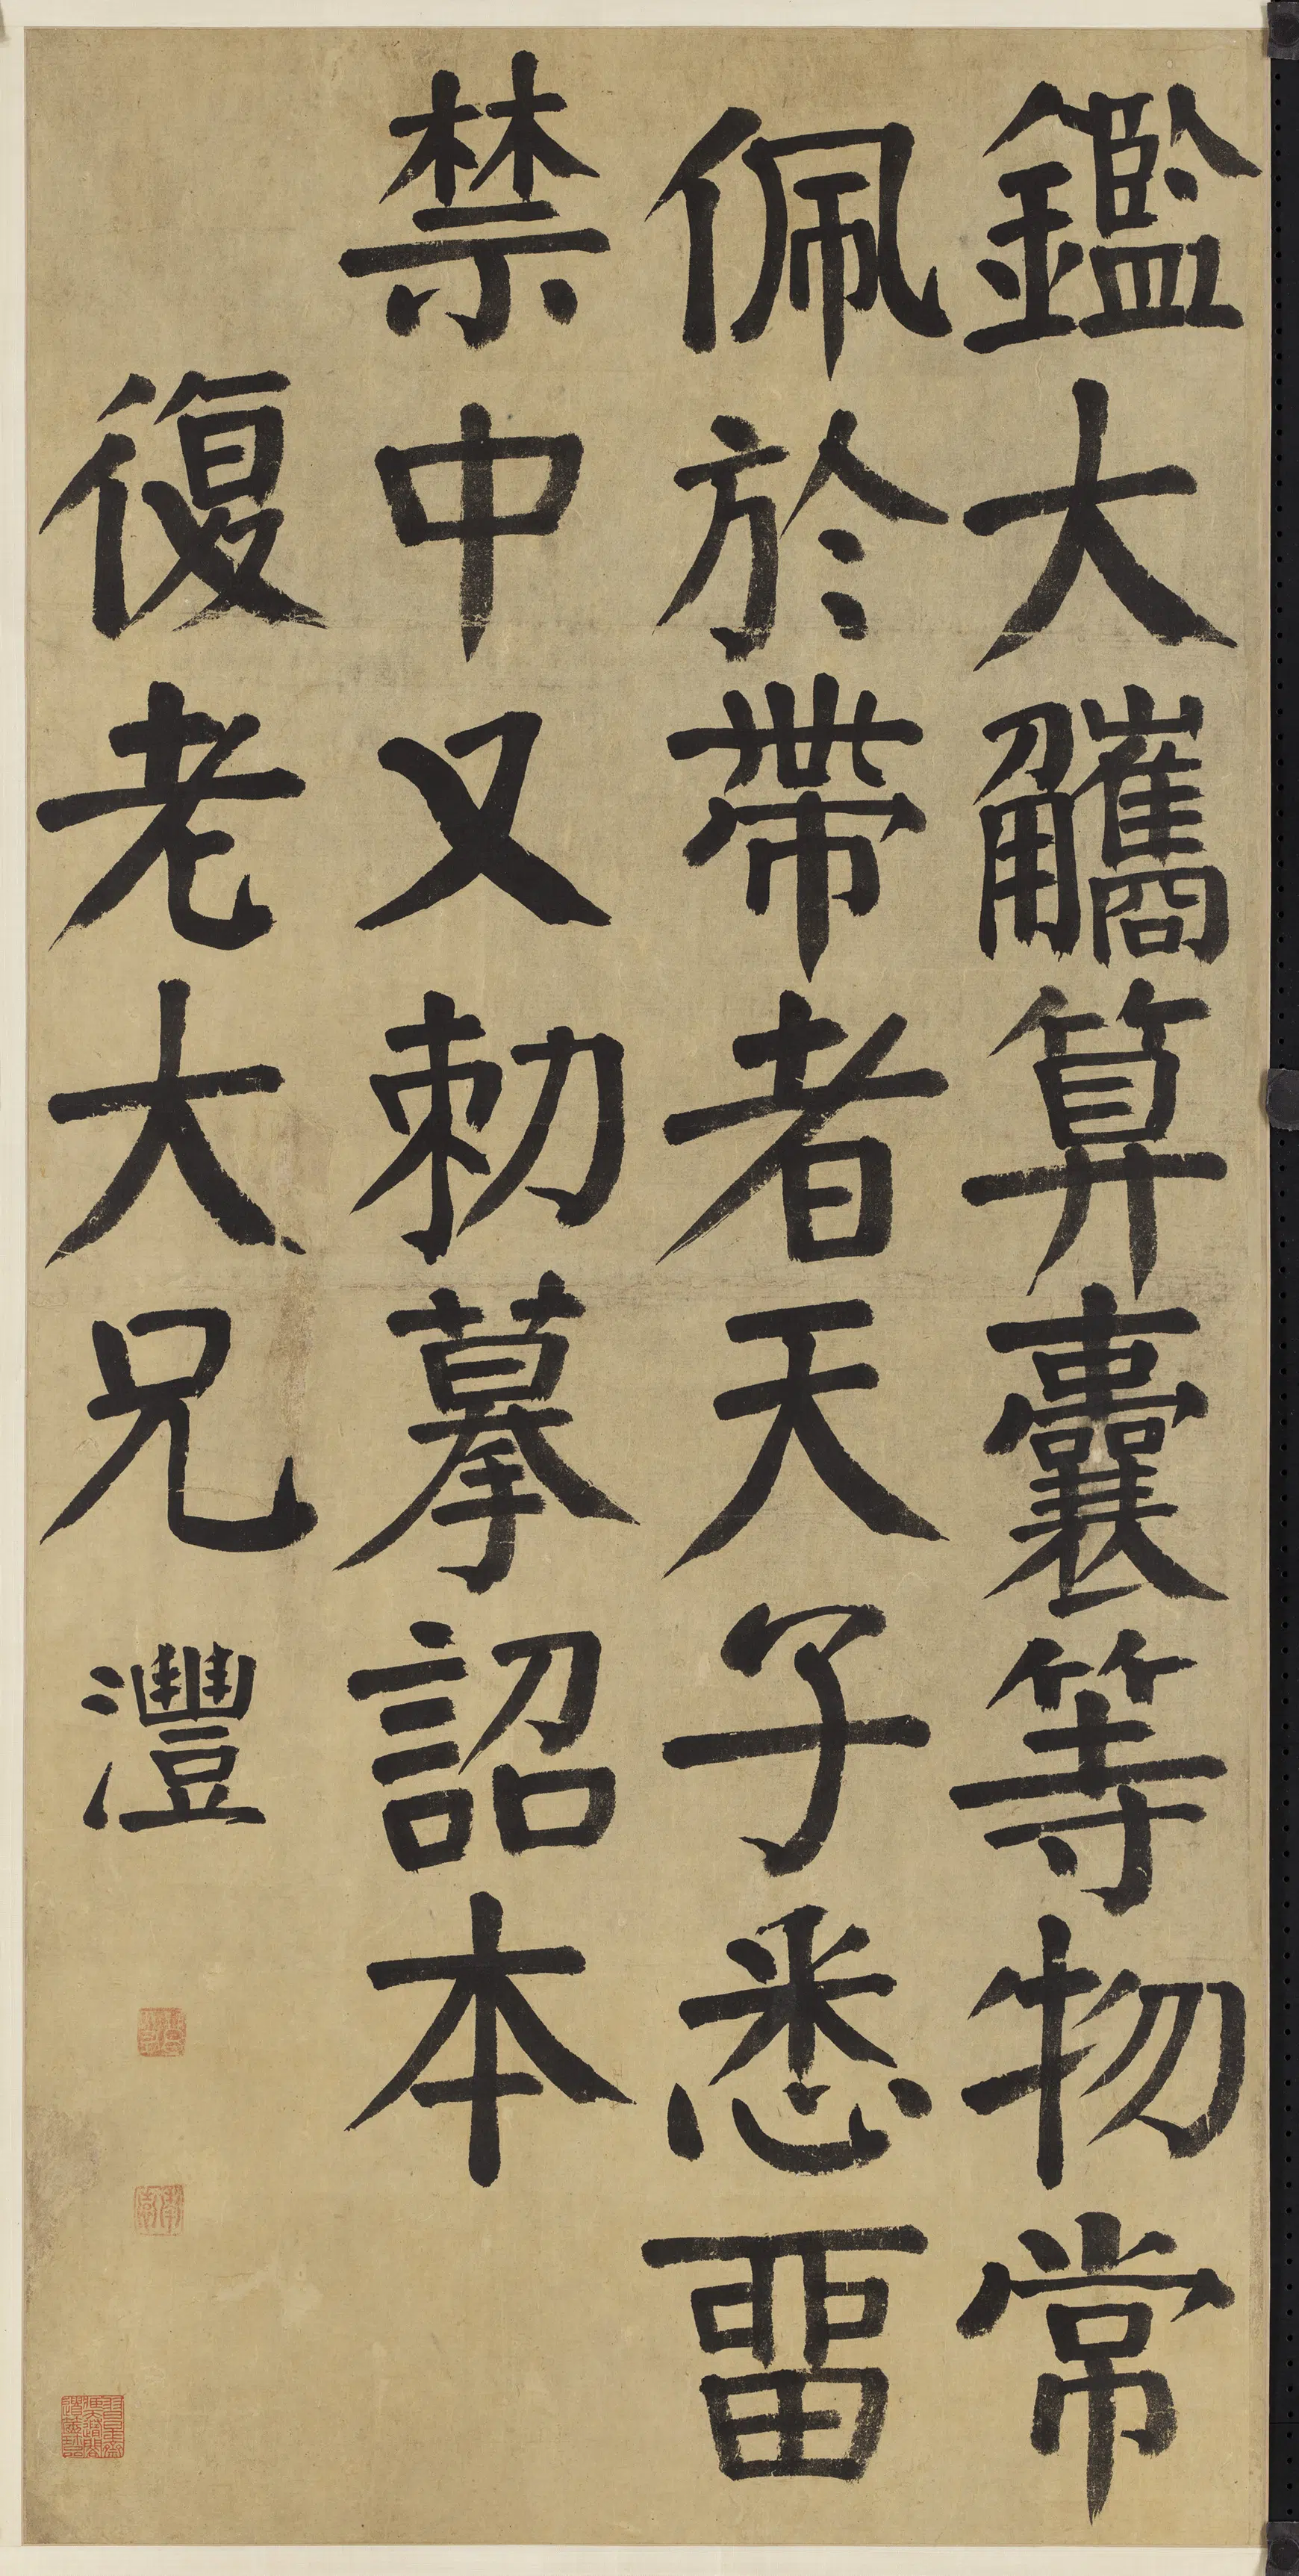 鑑大觿算囊等物常
佩於帶者天子悉畱
禁中又勅摹詔本
復老大兄 灃